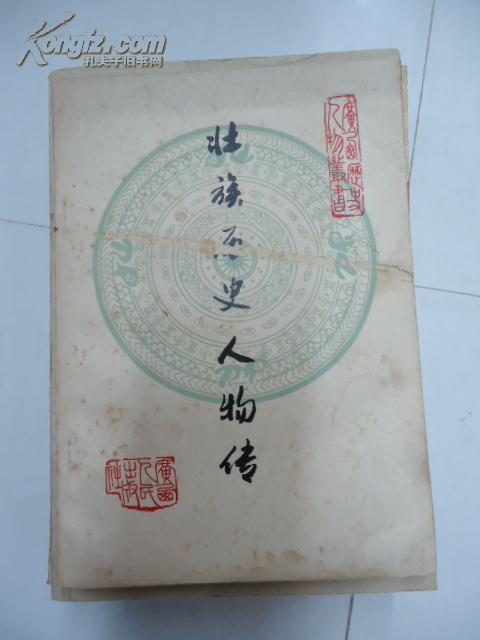 Kongfz.com
孔夫子旧书网
廣西歷史
人物叢書
壮族历史人物传
廣西
人民
出版
社